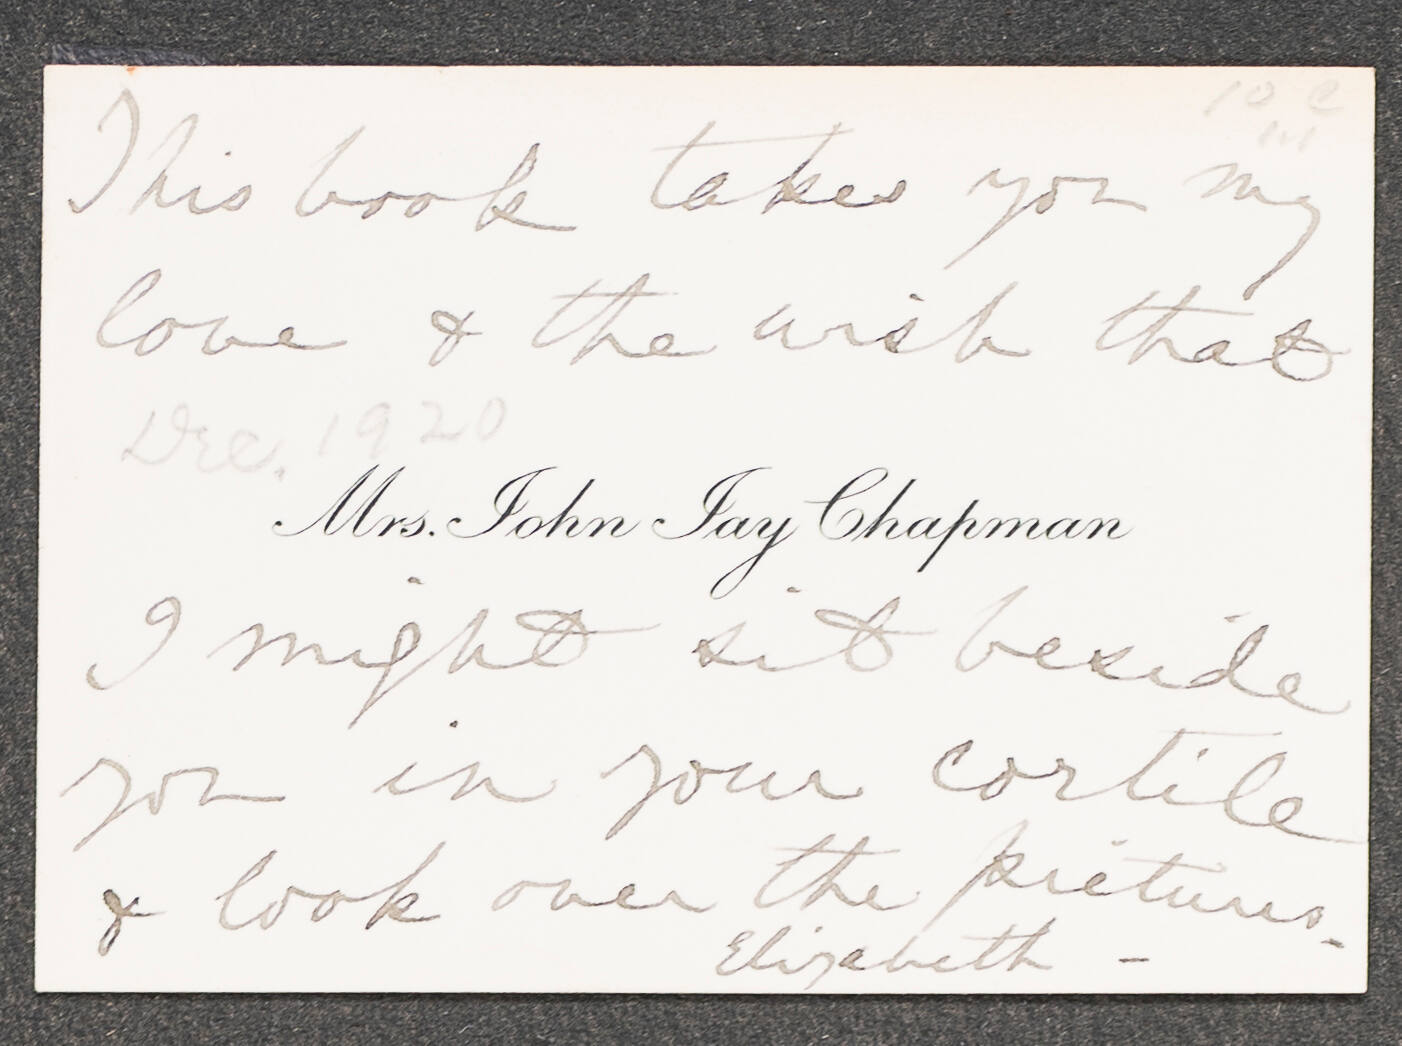 This book takes you my
love & the wish that
Dec. 1920
Mrs. John Jay Chapman
I might sit beside
you in your cortile
& look over the pictures.
Elizabeth –